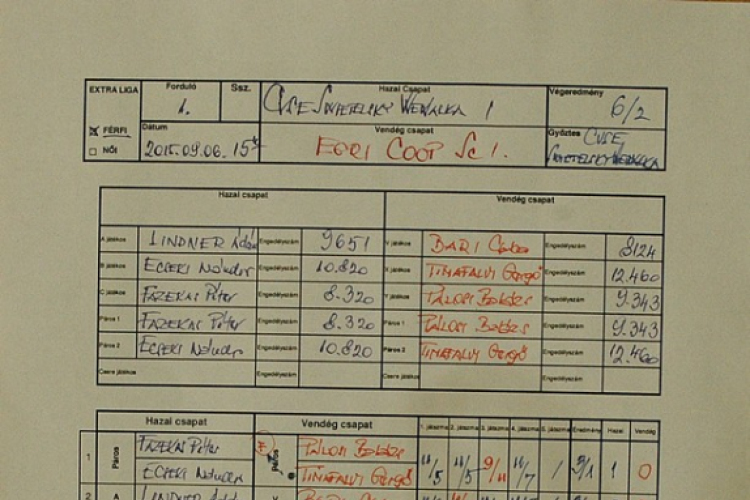 EXTRA LIGA Forduló Ssz. Hazai Csapat Végeredmény
1. CVSE SWIETELSKY WEWALKA I 6/2
☒ FÉRFI Dátum Vendég csapat Győztes CVSE
☐ NŐI 2015.09.06. 15 EGRI COOP SC I. SWIETELSKY WEWALKA
Hazai csapat Vendég csapat
A játékos LINDNER Ádám Engedélyszám 9651 V játékos BARI Csaba Engedélyszám 8124
B játékos ECSEKI Nándor Engedélyszám 10.820 X játékos TIMAFALVI Gergő Engedélyszám 12.460
C játékos FAZEKAS Péter Engedélyszám 8.320 Y játékos PÁLOSI Balázs Engedélyszám 9.343
Páros 1 FAZEKAS Péter Engedélyszám 8.320 Páros 1 PÁLOSI Balázs Engedélyszám 9.343
Páros 2 ECSEKI Nándor Engedélyszám 10.820 Páros 2 TIMAFALVI Gergő Engedélyszám 12.460
Csere játékos Engedélyszám Csere játékos Engedélyszám
Hazai csapat Vendég csapat 1. játszma 2. játszma 3. játszma 4. játszma 5. játszma Eredmény Hazai Vendég
1 Páros FAZEKAS Péter Páros PÁLOSI Balázs 11/5 11/5 9/11 11/7 / 3/1 1 0
ECSEKI Nándor TIMAFALVI Gergő
2 A LINDNER